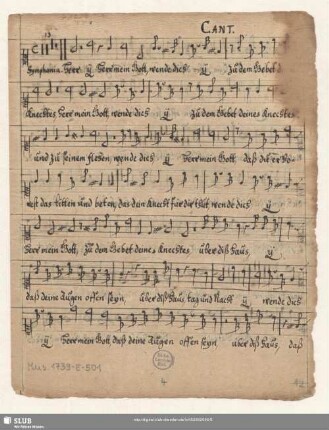 CANT.
13
Symphonia. Herr ij Herr mein Gott, wende dich ij zu dem Gebet d
Knechtes Herr mein Gott, wende dich ij zu dem Gebet deines Knechtes
und zu seinem flehen, wende dich ij Herr mein Gott, daß du er hö-
rest das bitten und beten, das dein Knecht für dir thut, wende dich ij
Herr mein Gott, zu dem Gebet deines Knechtes über diß Haus, ij
daß deine Augen offen seyn, über diß Haus, tag und Nacht ij wende dich
ij Herr mein Gott, daß deine Augen offen seyn über diß Haus, daß
Mus. 1739-E-501
4
SLUB
Wir führen Wissen.